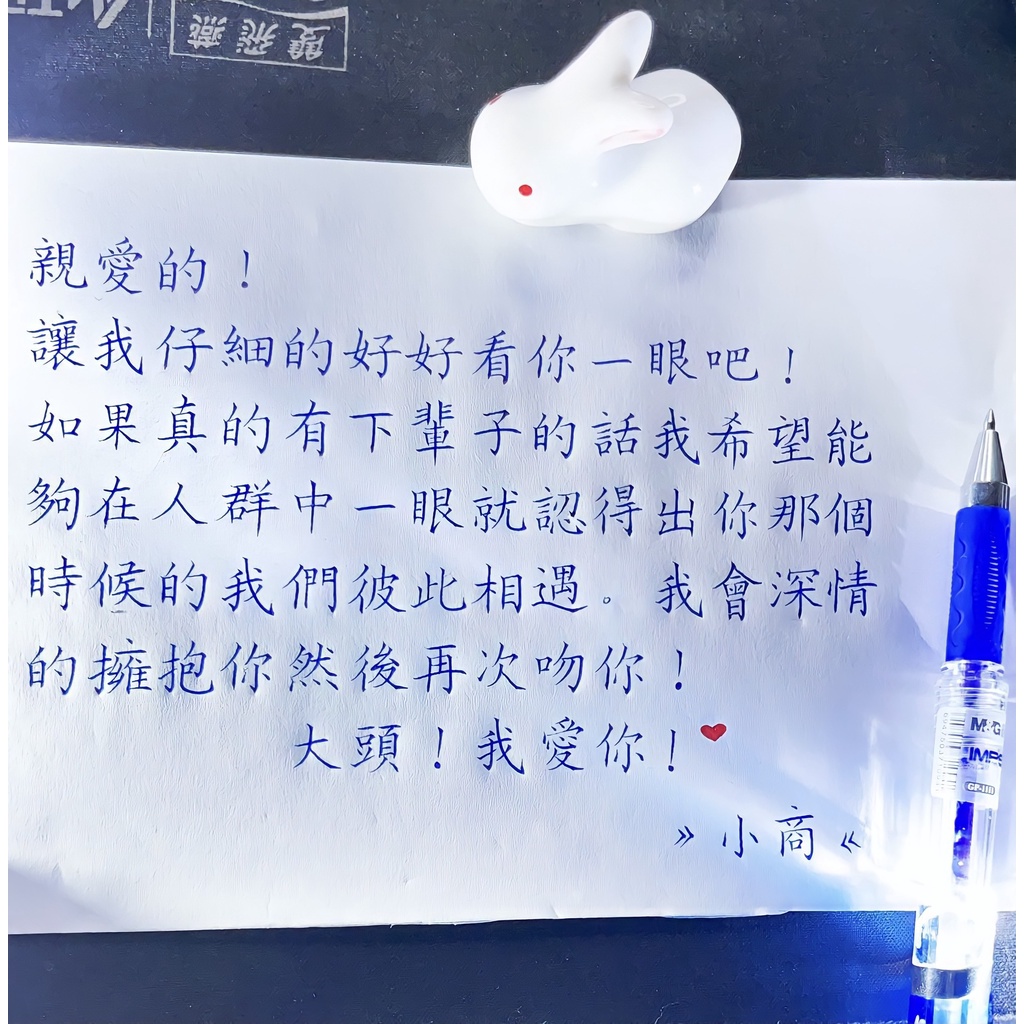 雙飛燕
親愛的！
讓我仔細的好好看你一眼吧！
如果真的有下輩子的話我希望能
夠在人群中一眼就認得出你那個
時候的我們彼此相遇。我會深情
的擁抱你然後再次吻你！
大頭！我愛你！
» 小商 «
M&G
GP-1111